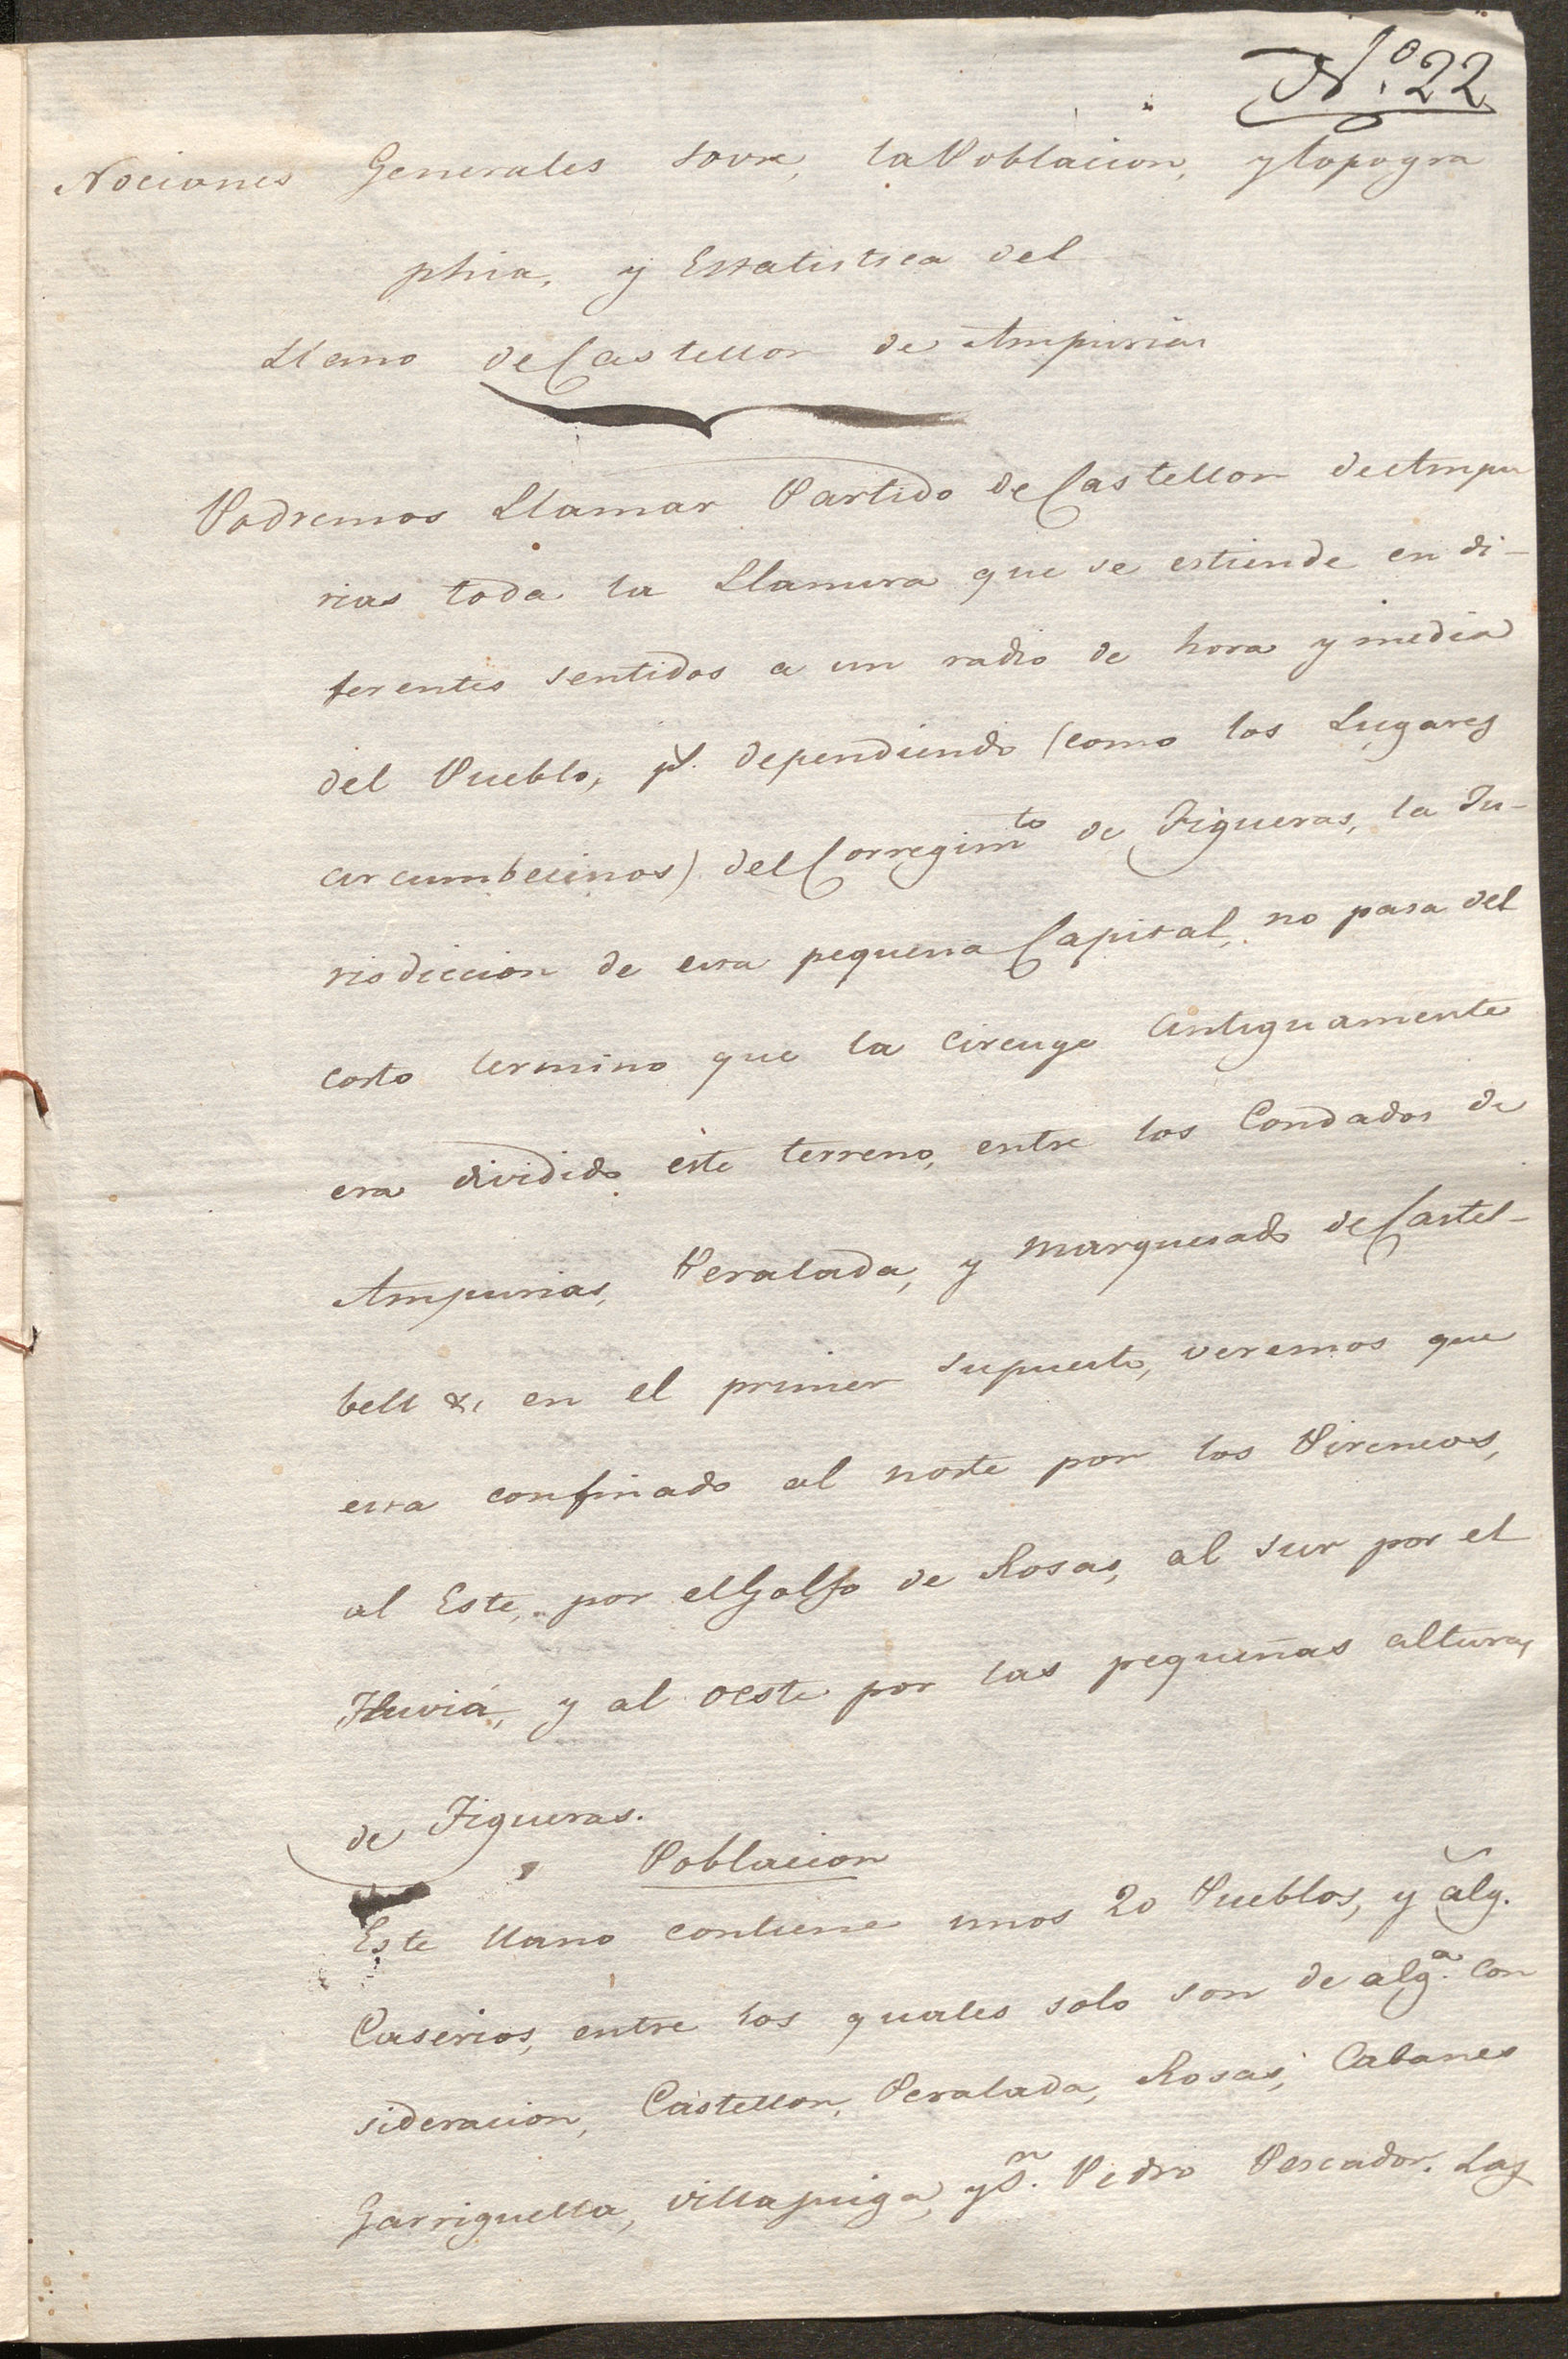 Nº. 22
Nociones Generales sovre, la Poblacion, y topogra
phia, y Estatistica del
Llano de Castellon de Ampurias
Podremos Llamar Partido de Castellon de Ampu
rias toda la Llanura que se estiende en di-
ferentes sentidos a un radio de hora y media
del Pueblo, ps. dependiendo (como los Lugares
circumbecinos) del Corregimto de Figueras, la Ju-
risdiccion de esta pequeña Capital, no pasa del
corto termino que la circuye Antiguamente
era dividido este terreno, entre los Condados de
Ampurias, Peralada, y Marquesado de Castel-
bell &, en el primer supuesto, veremos que
esta confinado al norte por los Pireneos,
al Este, por el Golfo de Rosas, al sur por el
Fluviá, y al oeste por las pequeñas alturas
de Figueras.
Poblacion
Este llano contiene unos 20 Pueblos, y alg.
Caserios, entre los quales solo son de alga. con
sideracion, Castellon, Peralada, Rosas, Cabanes
Garriguella, Villajuiga, y Sn. Pedro Pescador. Las